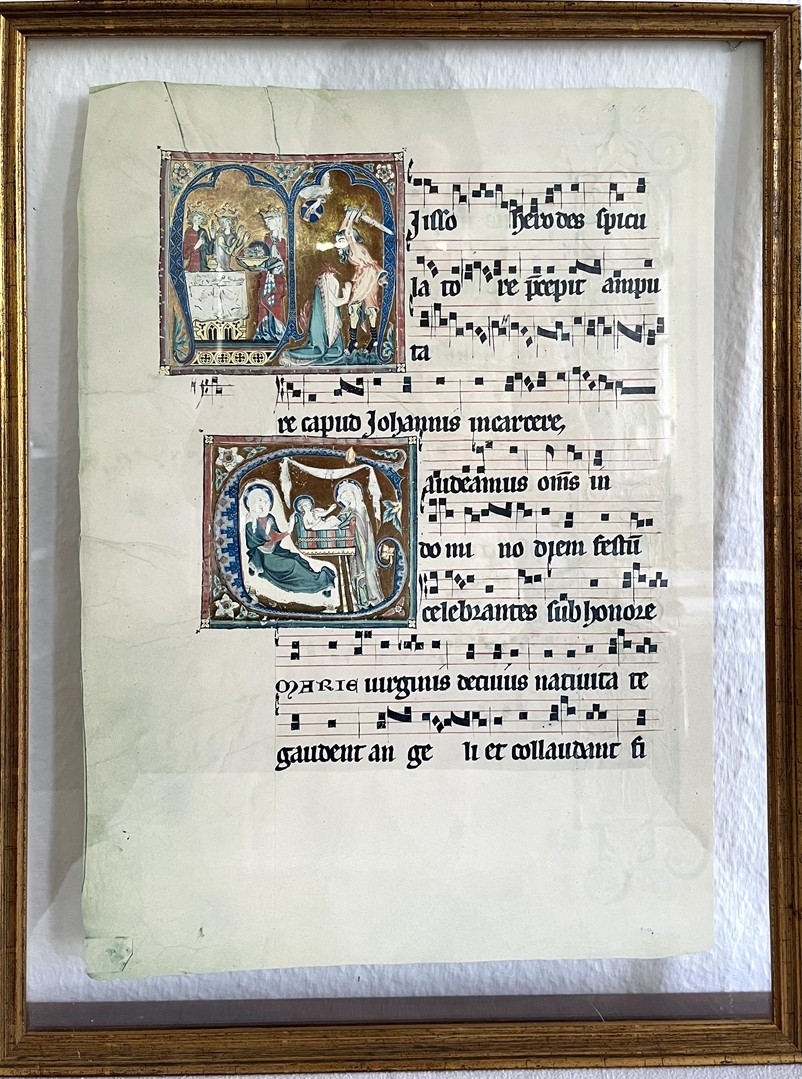 Jisso herodes spicu
la to re p̄cepit ampu
ta
re capud Johannis incarcere,
audeamus om̄s in
do mi no diem festū
celebrantes sub honore
MARIE uirginis decuius natiuita te
gaudent an ge li et collaudant fi